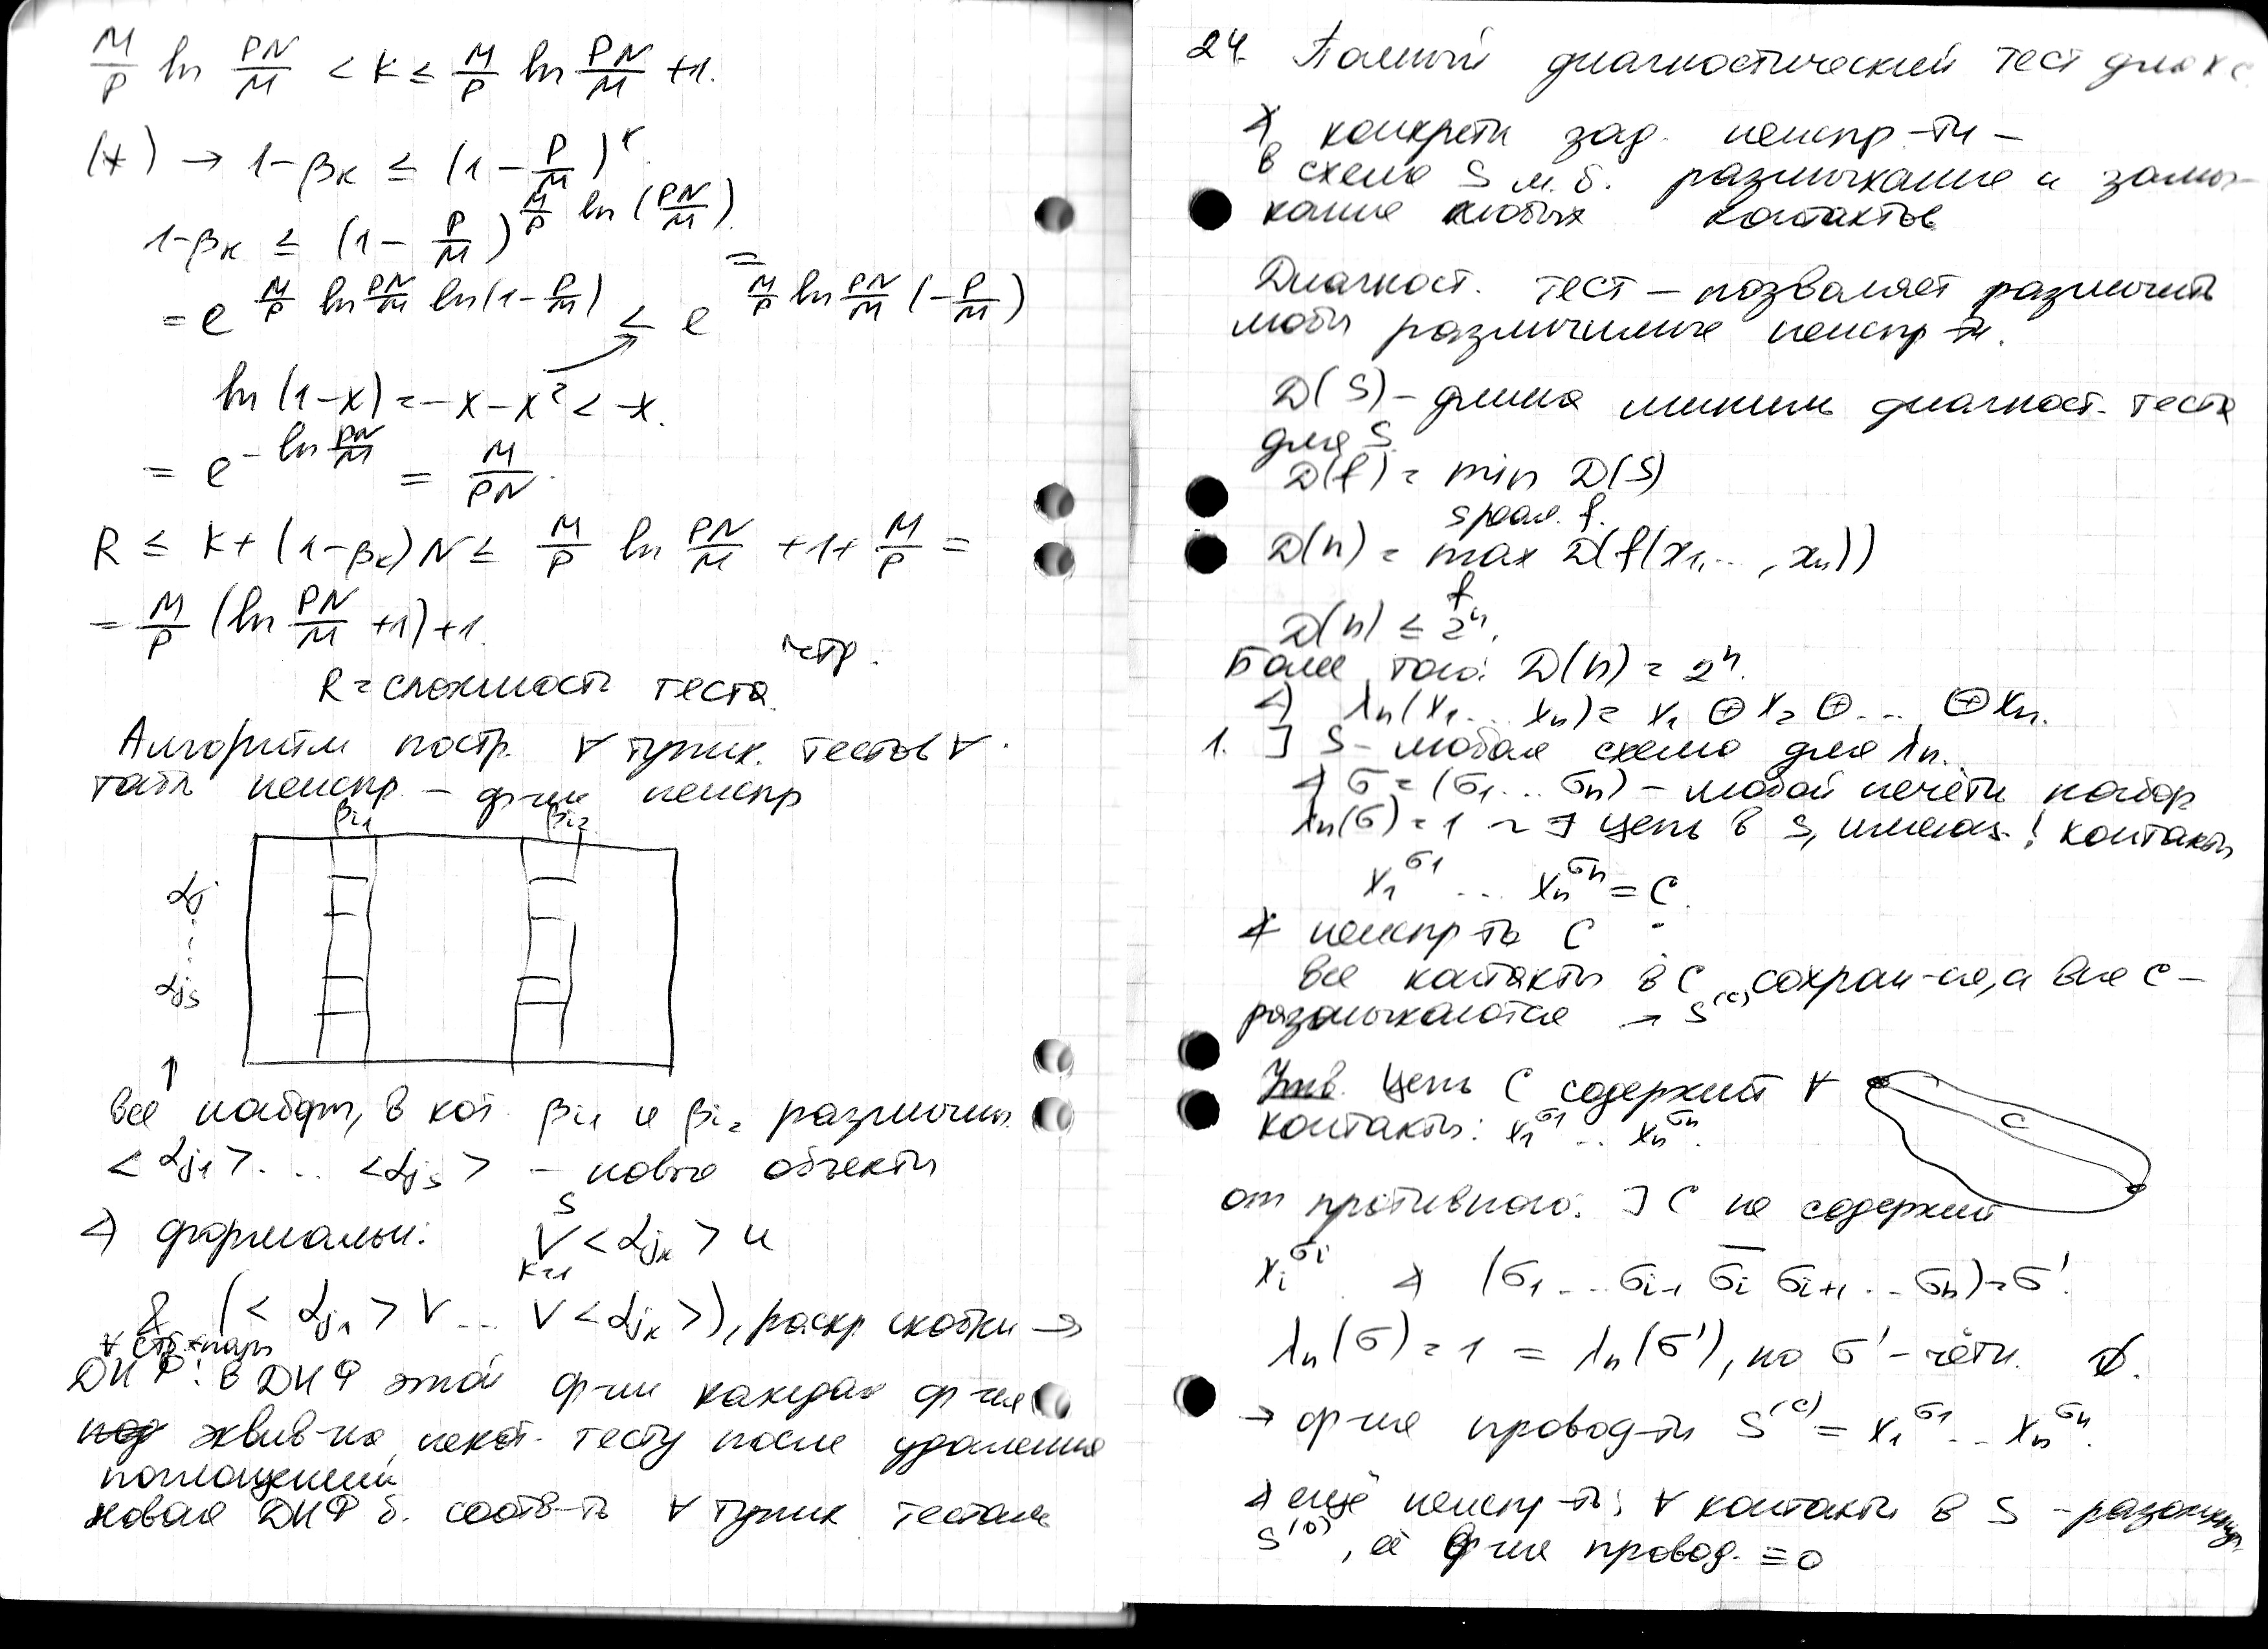 M/P ln PN/M < K ≤ M/P ln PN/M +1.
(*) → 1-βк ≤ (1 - P/M)^K.
1-βк ≤ (1 - P/M)^(M/P ln (PN/M)) =
= e^(M/P ln PN/M ln(1-P/M)) ≤ e^(M/P ln PN/M (-P/M))
ln (1-x) = -x-x² < -x.
= e^(-ln PN/M) = M/PN.
R ≤ K + (1-βк)N ≤ M/P ln PN/M + 1 + M/P =
= M/P (ln PN/M +1)+1.
чтр.
R = сложность теста.
Алгоритм постр. ∀ тупик. тестов ∀
табл неиспр – ф-ии неиспр
βi1 βi2
αj
⋮
αjs
↑
все наборы, в кот. βi1 и βi2 различны.
<αj1> ... <αjs> – новые объекты
∢ формальн: ⋁(k=1..s) <αjk> и
& (<αj1> V ... V <αjk>), раскр скобки →
∀ стб. пары
ДНФ: в ДНФ этой ф-ии каждая ф-ия
эквив-на некот. тесту после удаления
поглощений
новая ДНФ б. соотв-ть ∀ тупик тестам
24. Полный диагностический тест для кс
∢ конкретн зад. неиспр-ти –
в схеме S м.б. размыкание и замы-
кание любых контактов
Диагност. тест – позволяет различить
любы различимые неиспр-ти.
D(S) – длина миним диагност. теста
для S.
D(f) = min D(S)
S реал. f.
D(n) = max D(f(x1, ..., xn))
f
D(n) ≤ 2^n.
Более того: D(n) = 2^n.
∢ λn(x1 ... xn) = x1 ⊕ x2 ⊕ ... ⊕ xn.
1. ] S – любая схема для λn.
∢ σ = (σ1 ... σn) – любой нечётн набор
λn(σ) = 1 ~ ∃ цепь в S, имеющ. ! контакты
x1^σ1 ... xn^σn = C.
∢ неиспр-ть C
все контакты в C сохран-ся, а вне C –
размыкаются → S^(c)
Утв. Цепь C содержит ∀
контакты: x1^σ1 ... xn^σn.
C
от противного: ] C не содержит
xi^σi ∢ (σ1 ... σi-1 σ̄i σi+1 ... σn) = σ'.
λn(σ) = 1 = λn(σ'), но σ' – чётн.
→ ф-ия провод-ти S^(c) = x1^σ1 ... xn^σn.
∢ ещё неиспр-ть: ∀ контакты в S – разомкнуты
S^(0), её ф-ия провод. ≡ 0